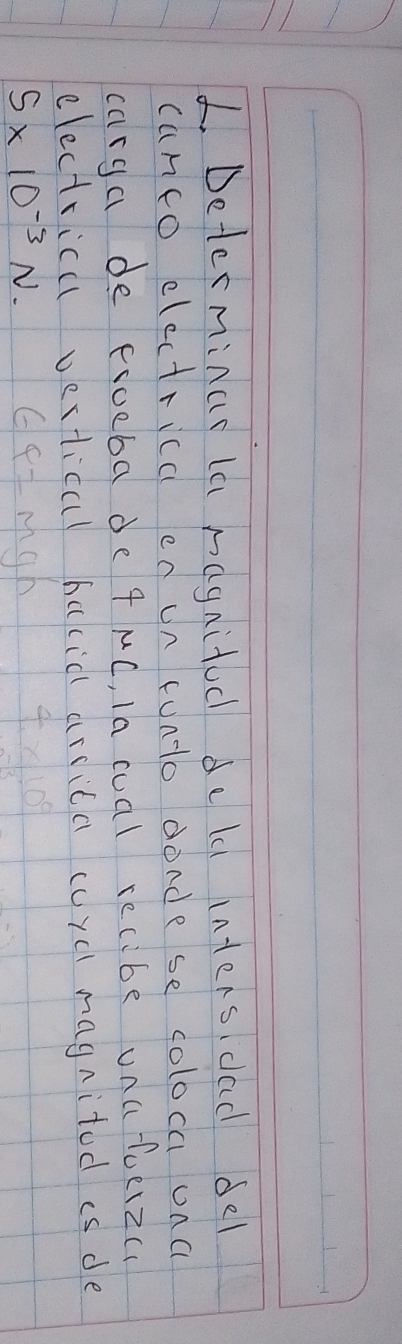 1. Determinar la magnitud de la intensidad del
campo electrica en un punto donde se coloca una
carga de prueba de 4 μC, la cual recibe una fuerza
electrica vertical hacia arriba cuya magnitud es de
5 x 10⁻³ N.